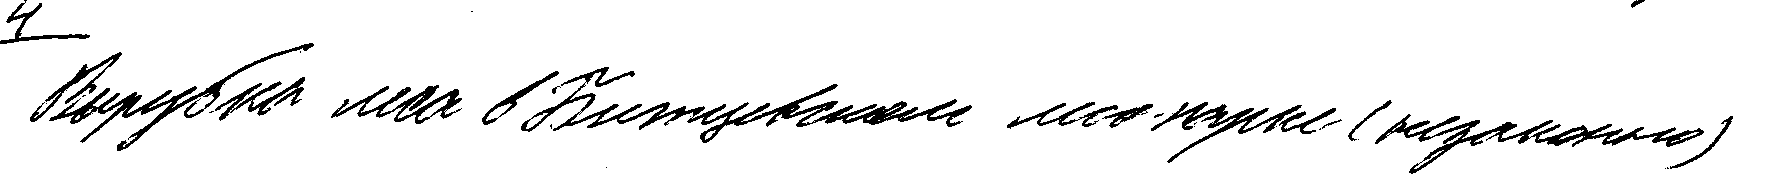 4
Вырубка леса в Битцевском лесопарке (незаконно)